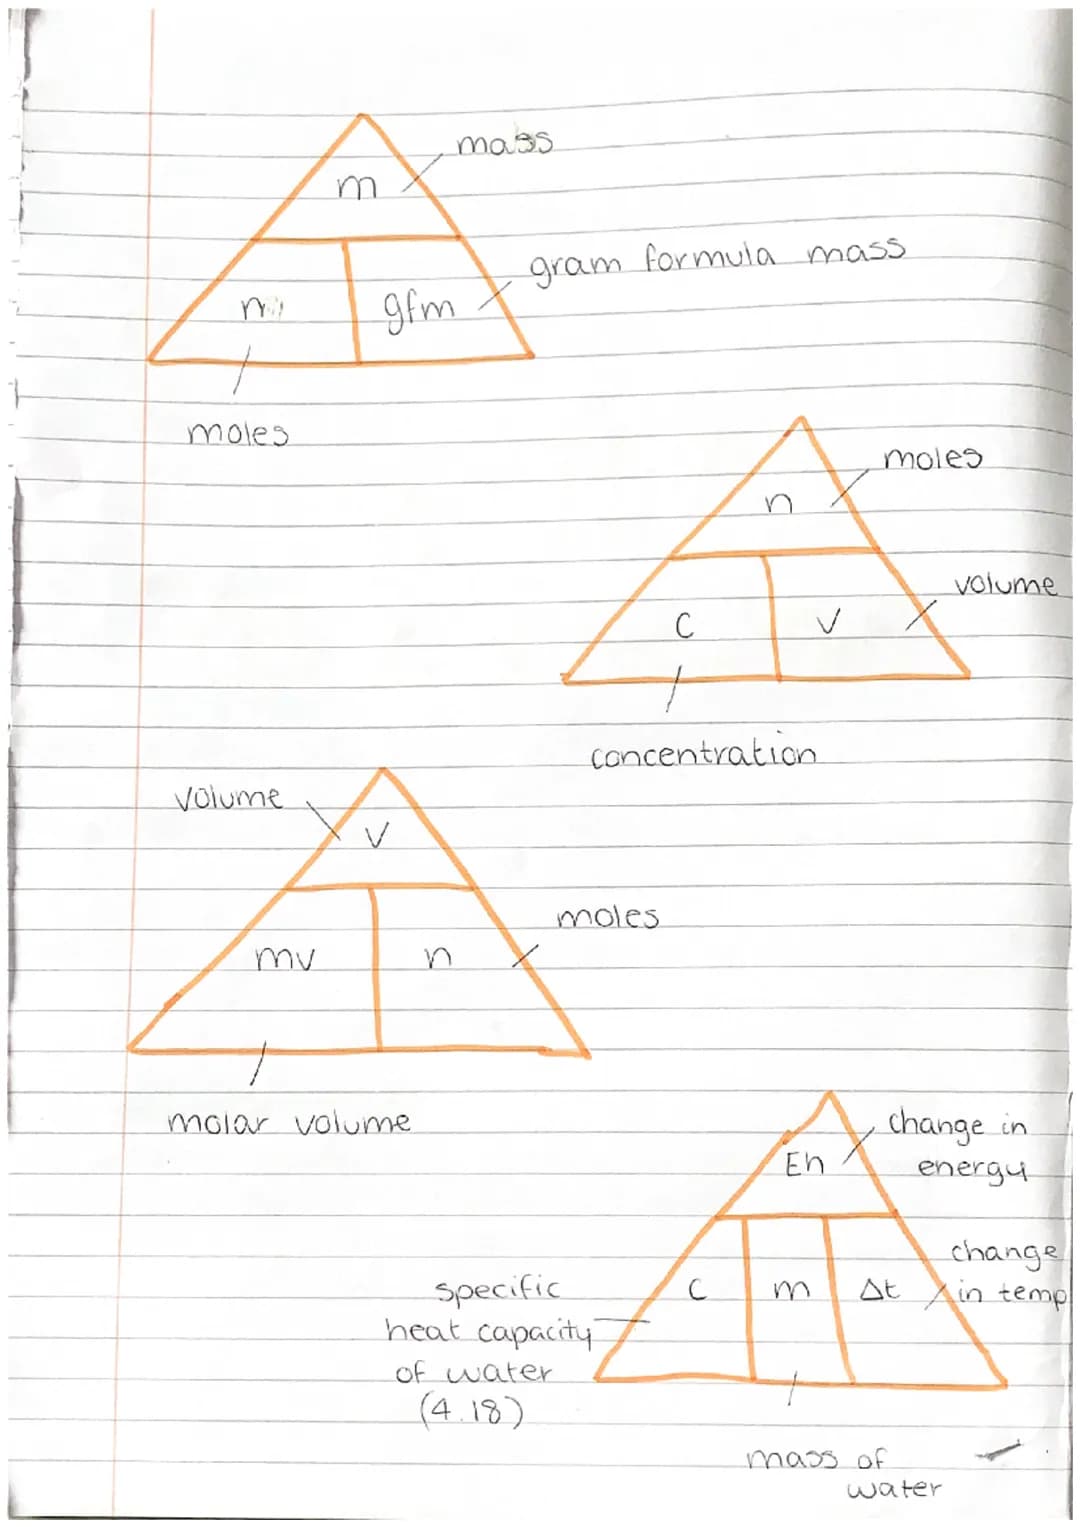 mass
m
gram formula mass
n
gfm
moles
moles
n
volume
C
V
concentration
volume
V
moles
mv
n
molar volume
change in
energy
Eh
change
in temp
C
m
Δt
specific
heat capacity
of water
(4.18)
mass of
water